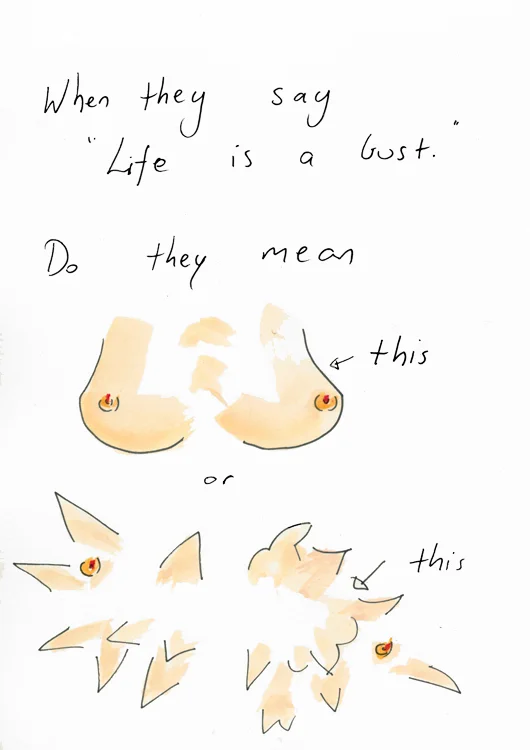 When they say
"Life is a bust."
Do they mean
this
or
this